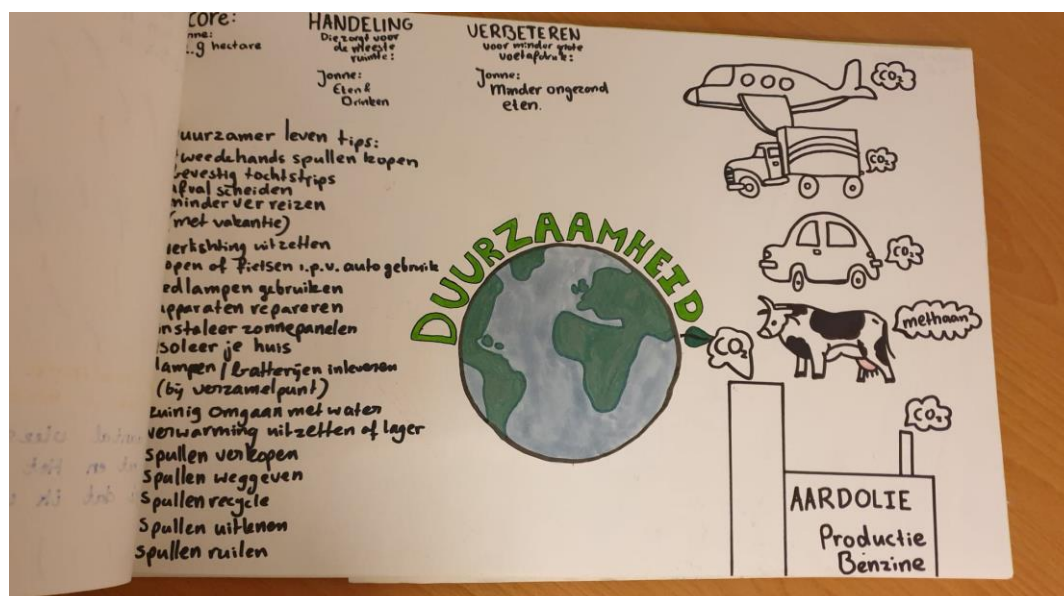 core:
nne:
g hectare
HANDELING
Die zorgt voor
de meeste
ruimte:
Jonne:
Eten &
Drinken
VERBETEREN
voor minder grote
voetafdruk:
Jonne:
Minder ongezond
eten.
uurzamer leven tips:
tweedehands spullen kopen
bevestig tochtstrips
afval scheiden
minder ver reizen
(met vakantie)
verlichting uitzetten
lopen of fietsen i.p.v. auto gebruik
ledlampen gebruiken
apparaten repareren
instaleer zonnepanelen
isoleer je huis
lampen / batterijen inleveren
(bij verzamelpunt)
zuinig omgaan met water
verwarming uitzetten of lager
spullen verkopen
spullen weggeven
spullen recycle
spullen uitlenen
spullen ruilen
DUURZAAMHEID
CO2
CO2
CO2
methaan
CO2
CO2
AARDOLIE
Productie
Benzine